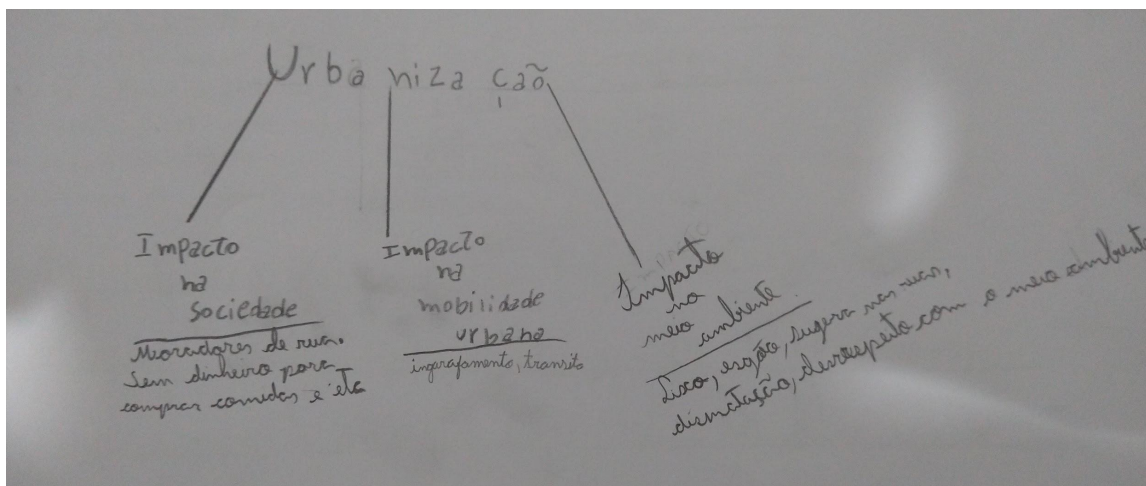 Urbanização
Impacto
na
sociedade
Moradores de rua.
Sem dinheiro para
comprar comidas e etc
Impacto
na
mobilidade
urbana
ingarafamento, transito
Impacto
no
meio ambiente
Lixo, esgoto, sugera nas ruas,
dismatação, desrespeito com o meio ambiente